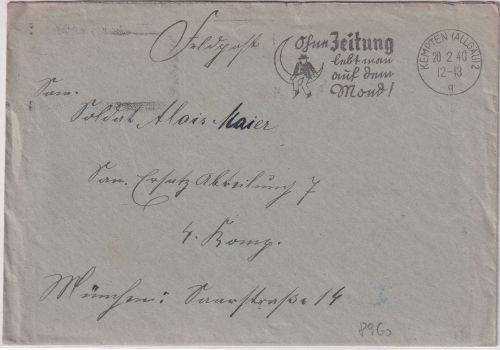 Feldpost
Ohne Zeitung
lebt man
auf dem
Mond!
KEMPTEN (ALLGÄU) 2
20 2 40
12-13
g
San.
Soldat Alois Maier
San. Ersatz Abteilung 7
4. Komp.
München: Saarstraße 14
8960